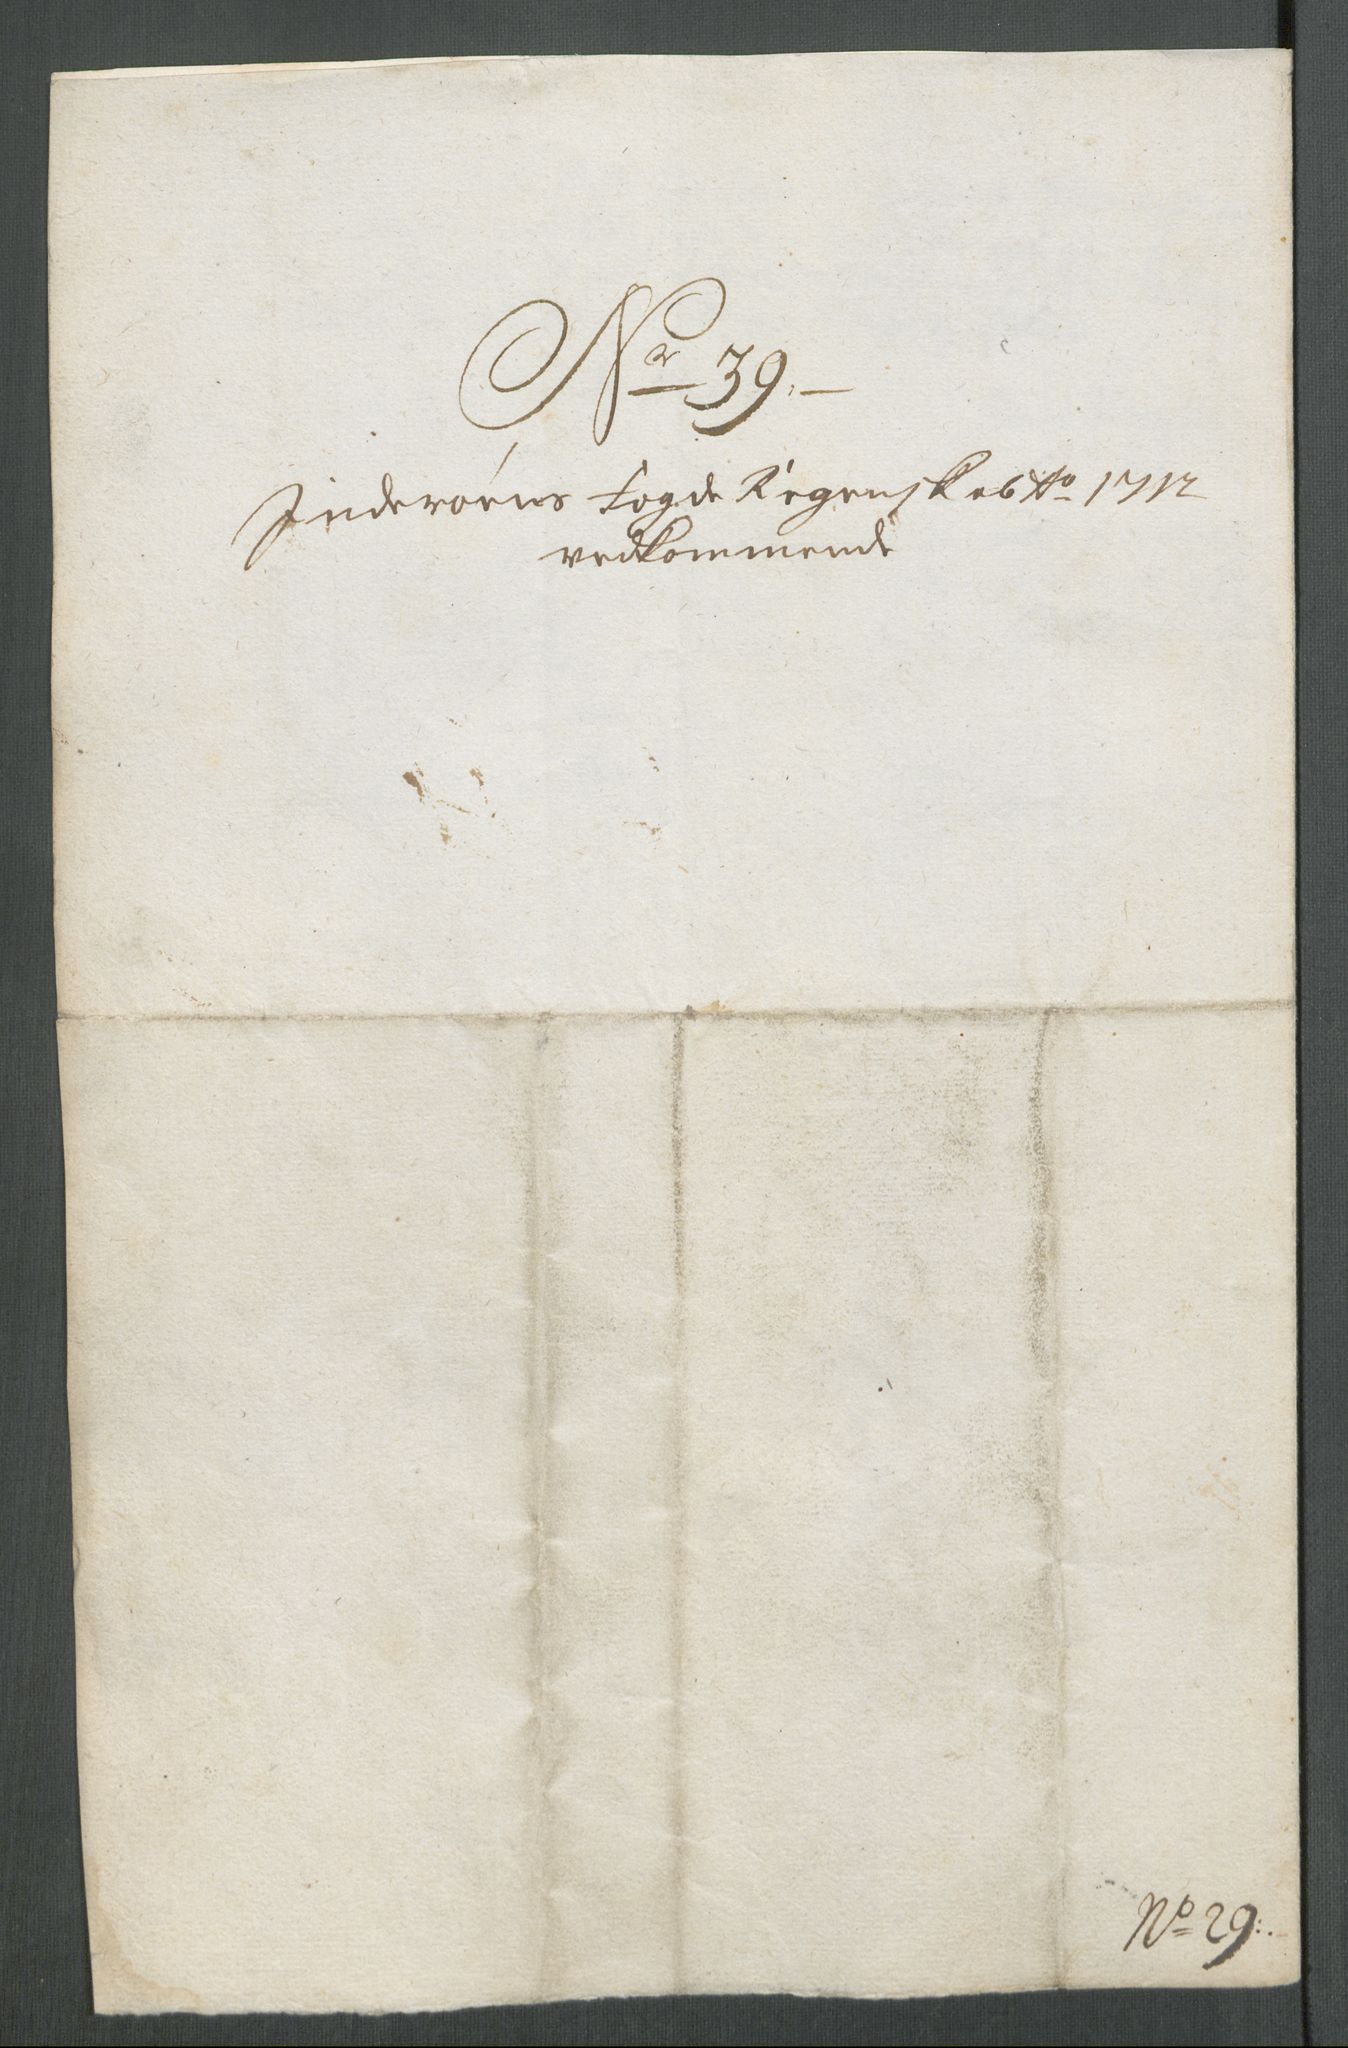 Nr 39.
Inderøens Fogde Regenskab Ao 1712
vedkommende
No 29:.